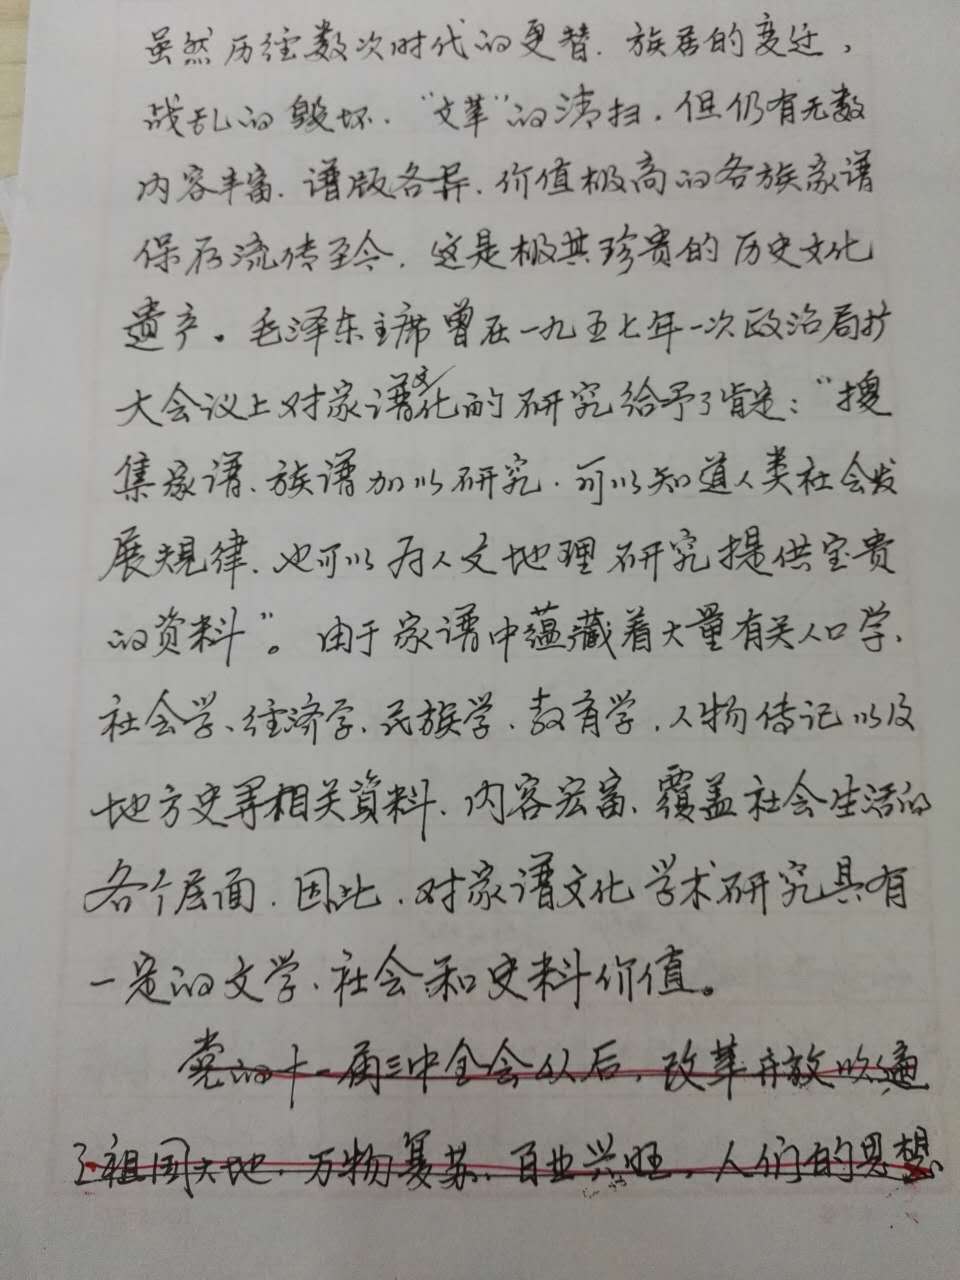 虽然历经数次时代的更替、族居的变迁，
战乱的毁坏、“文革”的清扫，但仍有无数
内容丰富、谱版各异、价值极高的各族家谱
保存流传至今，这是极其珍贵的历史文化
遗产。毛泽东主席曾在一九五七年一次政治局扩
大会议上对家谱文化的研究给予了肯定：“搜
集家谱、族谱加以研究，可以知道人类社会发
展规律，也可以为人文地理研究提供宝贵
的资料”。由于家谱中蕴藏着大量有关人口学、
社会学、经济学、民族学、教育学、人物传记以及
地方史等相关資料，内容宏富，覆盖社会生活的
各个层面，因此，对家谱文化学术研究具有
一定的文学、社会和史料价值。
党的十一届三中全会以后，改革开放吹遍
了祖国大地，万物复苏、百业兴旺，人们的思想